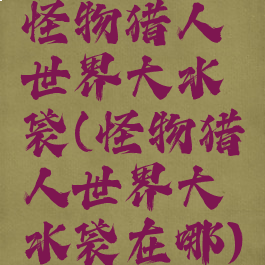 怪物猎人
世界大水
袋(怪物猎
人世界大
水袋在哪)